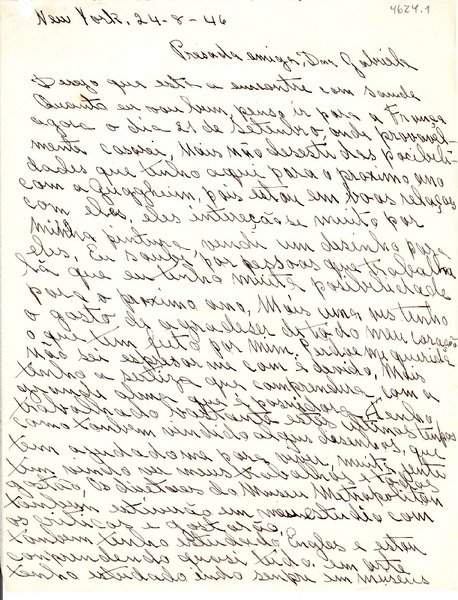 4624.1
New York, 24-8-46
Presada amiga, Dna Gabriela
Desejo que esta a encontre com saude
Quanto eu vou bem, penso ir para a França
agora o dia 21 de setenbro, onde provavel-
mente casarei, Mais não desesti das posibili-
dades que tinho aqui para o proximo ano
com a Guggheim, pois estou em boas relações
com eles, eles interesção-se muito por
minha pintura, vendi um desinho para
eles, Eu soube, por pessoas que trabalha
lá que eu tinho muita posibilidade
para o proximo ano, Mais uma vez tinho
o gosto de agradeser de todo meu coração
o que tem feito por mim. Perdoe me querida
não sei espresar me com é devido, Mais
tinho a serteza que comprendera, com a
grande alma que é posuidora. Tenho
trabalhado bastante estes ultimos tempos
como tanben vindido alguns desenhos, que
tem ajudadome para viver, muita jente
tem vindo ver meus trabalhos e todos
gostão, Os diretores do Museu Metropolitan
tanben estiverão em meu estudio com
os criticos e gostarão.
Tanben tinho estudado Engles e estou
comprendendo quasi tudo. em arte
tenho estudado indo senpre em museus